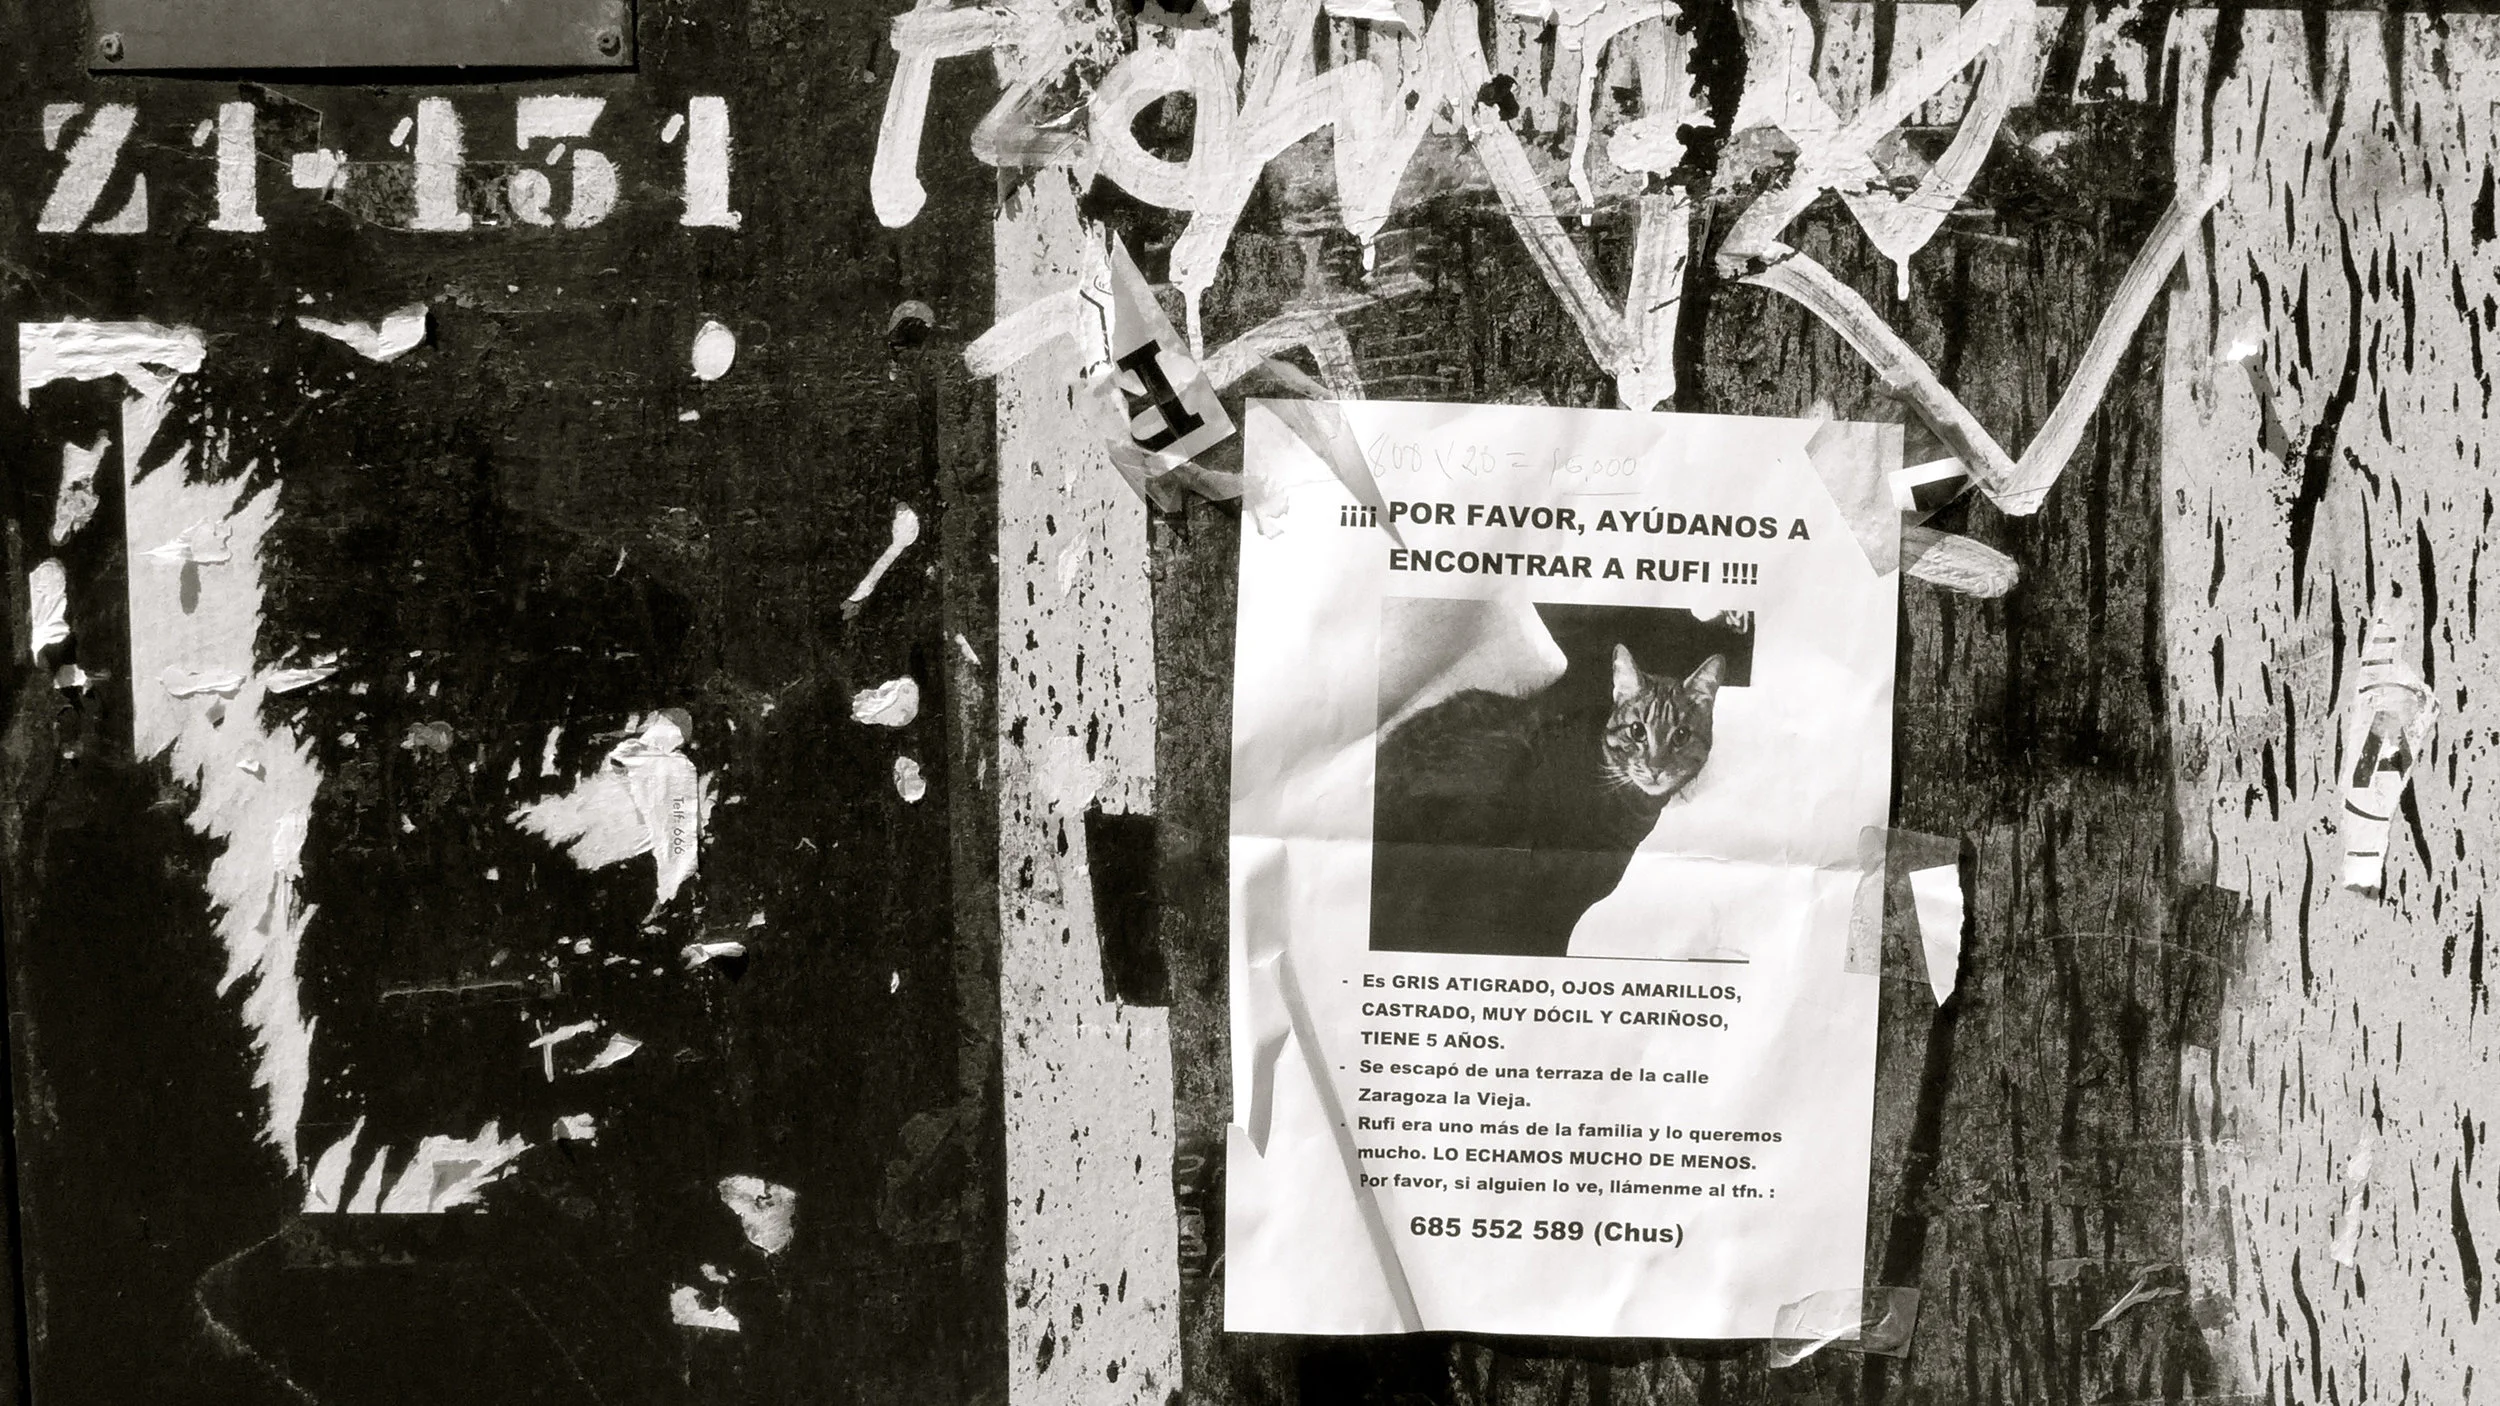 Z1-151
800 x 20 = 16,000
¡¡¡¡ POR FAVOR, AYÚDANOS A
ENCONTRAR A RUFI !!!!
- Es GRIS ATIGRADO, OJOS AMARILLOS,
CASTRADO, MUY DÓCIL Y CARIÑOSO,
TIENE 5 AÑOS.
- Se escapó de una terraza de la calle
Zaragoza la Vieja.
- Rufi era uno más de la familia y lo queremos
mucho. LO ECHAMOS MUCHO DE MENOS.
Por favor, si alguien lo ve, llámenme al tfn. :
685 552 589 (Chus)
Telf: 666